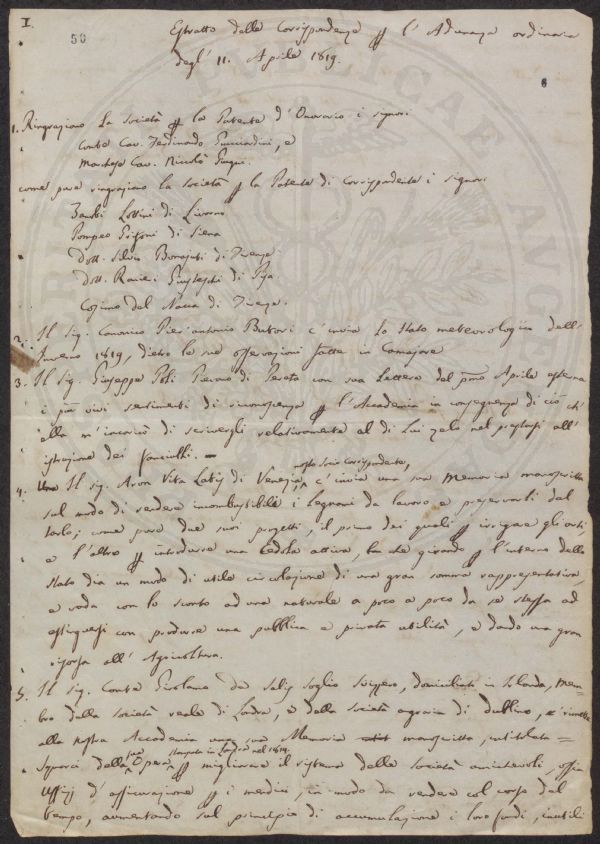 I.
50
Estratto della Corrispondenza p l'Adunanza ordinaria
degl' 11. Aprile 1819.
6
1. Ringraziano la Società p la Patente d'Onorario i signori
Conte Cav. Ferdinando Guicciardini, e
Marchese Cav. Niccolò
come pure ringraziano la Società p la Patente di Corrispondente i signori
Lottini di Livorno
Pompeo di Siena
Dott. Silvio Bonajuti di Firenze
Dott. Ranieri di Pisa
Cosimo del Nacca di Firenze.
2. Il Sig. Canonico Pier'antonio Butori c'invia lo Stato meteorologico dell'
Inverno 1819, dietro le sue osservazioni fatte in Camajore
3. Il Sig. Giuseppe Poli Pievano di Pereta con sua Lettera del pmo Aprile esterna
i più vivi sentimenti di riconoscenza p l'Accademia in conseguenza di ciò ch'
ella m'incaricò di scrivergli relativamente al di Lui zelo nel prestarsi all'
istruzione dei fanciulli. —
nostro Socio Corrispondente,
4. Il sig. Aron Vita Latis di Venezia c'invia una sua Memoria manoscritta
sul modo di rendere incombustibili i legnami da lavoro e preservarli dal
tarlo; come pure due suoi progetti, il primo dei quali p irrigare gli orti,
e l'altro p introdurre una Cedola attiva, la che girando p l'interno dello
Stato dia un modo di utile circolazione di una gran somma rappresentativa,
e vada con lo sconto ad una naturale a poco a poco da se stessa ad
estinguersi con produrre una pubblica e privata utilità, e dando una gran
risorsa all' Agricoltura.
5. Il sig. Conte Girolamo de Salis Soglio Svizzero, domiciliato in Irlanda, Mem-
bro della Società reale di Londra, e della Società agraria di Dublino, rimette
alla nostra Accademia una sua Memoria manoscritta, intitolata =
sua stampata in Londra nel 1814.
Squarci dell' Opera p migliorare il sistema delle Società amichevoli, ossia
Uffizj d'assicurazione p i medici, in modo da rendere col corso del
tempo, aumentando sul principio di accumulazione i loro fondi, inutili